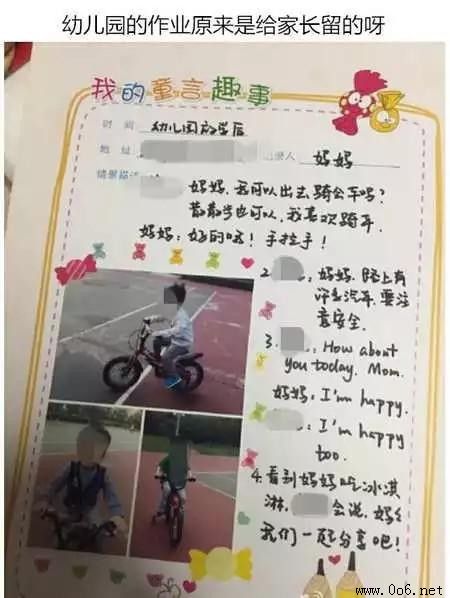 幼儿园的作业原来是给家长留的呀
我的童言趣事
时 间 幼儿园放学后
地 址 记录人 妈妈
情景描述
妈妈,我可以出去骑公车吗?
散散步也可以,我喜欢骑车.
妈妈:好的呀!手拉手!
2. :妈妈,路上有
许多汽车,要注
意安全.
3. : How about
you today. Mom.
妈妈: I'm happy.
: I'm happy
too.
4.看到妈妈吃冰淇
淋, 会说,妈妈
我们一起分享吧!
www.0o6.net